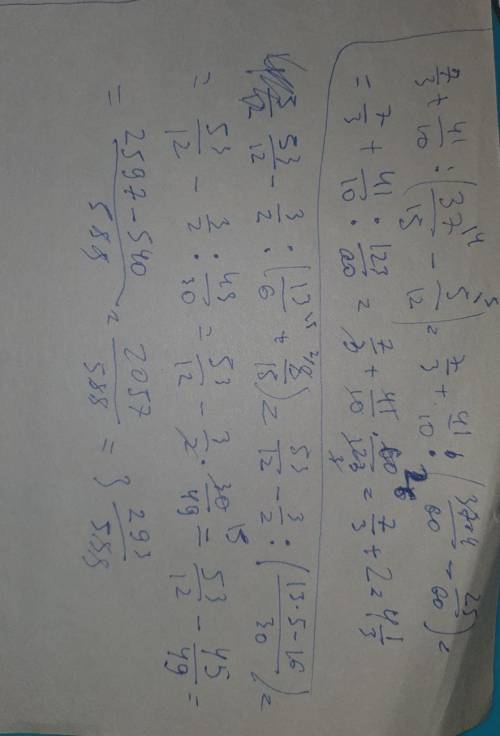 7/3 + 41/10 : (37/15 − 5/12) = 7/3 + 41/10 : (37·4/60 − 25/60) =
= 7/3 + 41/10 : 123/60 = 7/3 + 41/10 · 60/123 = 7/3 + 2 = 4 1/3
53/12 − 3/2 : (13/6 + 8/15) = 53/12 − 3/2 : (13·5−16/30) =
= 53/12 − 3/2 : 49/30 = 53/12 − 3/2 · 30/49 = 53/12 − 45/49 =
= 2597−540/588 = 2057/588 = 3 293/588